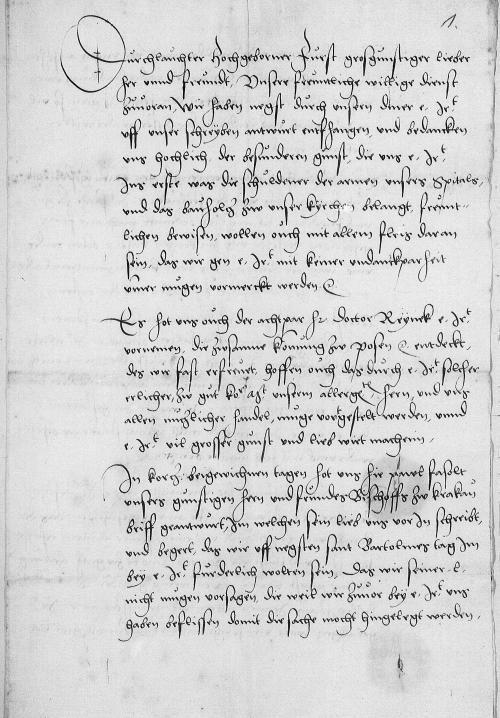 1.
Durchlauchter Hochgeborner Furst grosgunstiger lieber
her vnnd freundt, Vnsere freuntliche willige dienst
zuuioran, wir haben negst durch vnsern diner e. Jr t
vff vnser schreyben antwurt entpfangen, vnd bedancken
vns hochlich, der besunderen gunst, die vns e. Jr t
Ins erste was die schuldener der armen vnsers Spitals,
vnd das bauholz zw vnser kyrchen belangt, freunt-
lichen bewisen, wollen ouch mit allem fleis daran
sein, das wir gen e. Jr t mit keiner vndanckparheit
vmer mugen vormerckt werden
Es hot vns ouch der achtpar hr doctor Reynek e. Jr t
vornemen, die zusamne komung zw Posen entdeckt,
des wir fast erfreuet, hoffen ouch das durch e. Jr t solcher
erlicher, zw gut vnsern hern, vnd vns
allen nuzlicher handel, muge vortgestelt werden, vnnd
e. Jr t vil grosser gunst vnd lieb wirt machenn,
In korz beigewichnen tagen, hot vns hr pawl fasolt
vnsers gunstigen hern vnd freundes Bischoffs zw krakau
briff geantwurt, Jn welchen sein lieb vns vor In schreibt,
vnd begert, das wir vff negsten sant Bartolmes tag Jm
bey e. Jr t furderlich wolten sein, Das wir seiner l.
nicht mugen vorsagen, die weil wir zuuior bey e. Jr t vns
haben beflissen, domit die sache mocht hingelegt werden,